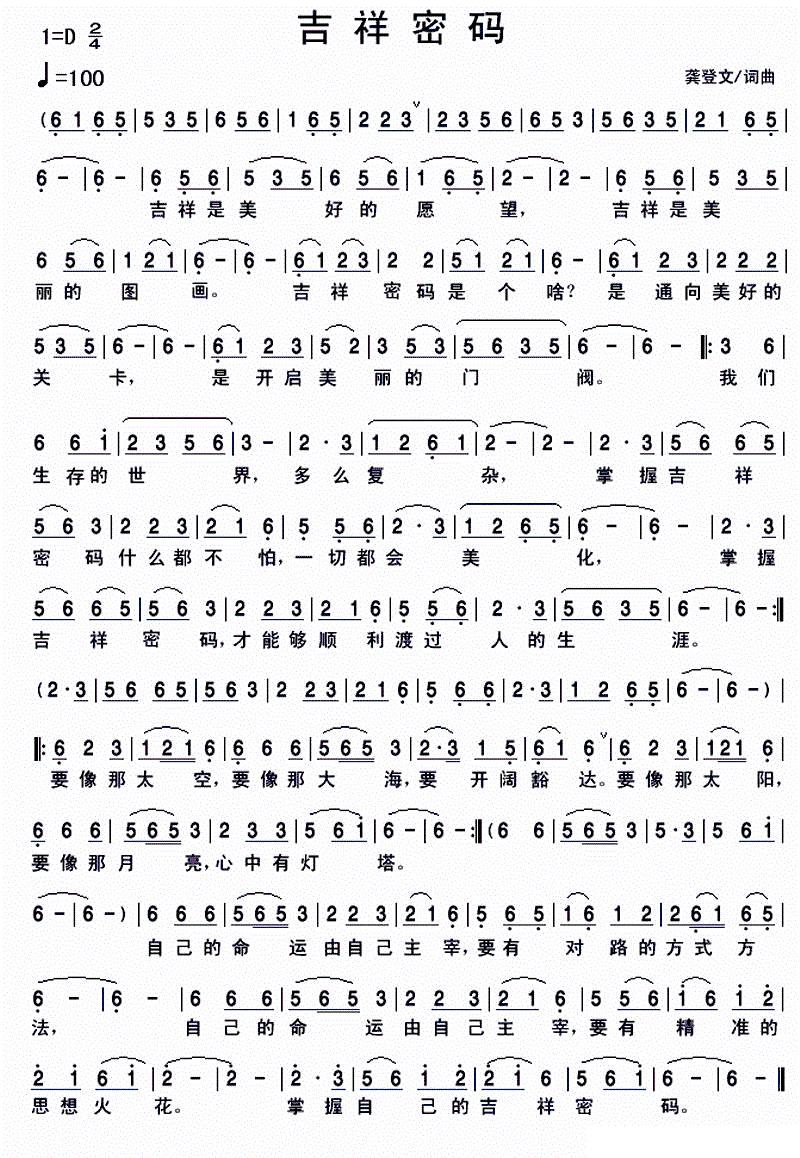 吉祥密码
1=D 2/4
♩=100
龚登文/词曲
(6 1 6 5 | 5 3 5 | 6 5 6 | 1 6 5 | 2 2 3 ∨ | 2 3 5 6 | 6 5 3 | 5 6 3 5 | 2 1 6 5 |
6 - | 6 - | 6 5 6 | 5 3 5 | 6 5 6 | 1 6 5 | 2 - | 2 - | 6 5 6 | 5 3 5 |
吉祥是美 好的愿 望, 吉祥是美
6 5 6 | 1 2 1 | 6 - | 6 - | 6 1 2 3 | 2 2 | 5 1 2 1 | 6 - | 6 1 2 3 | 2 2 2 |
丽的 图 画。 吉祥 密码是个啥? 是通向美好的
5 3 5 | 6 - | 6 - | 6 1 2 3 | 5 2 | 3 5 3 | 5 6 3 5 | 6 - | 6 - |: 3 6 |
关 卡, 是开启美丽的门 阀。 我们
6 6 1 | 2 3 5 6 | 3 - | 2 · 3 | 1 2 6 1 | 2 - | 2 - | 2 · 3 | 5 6 6 5 |
生存的世 界, 多么复 杂, 掌握吉祥
5 6 3 | 2 2 3 | 2 1 6 | 5 5 6 | 2 · 3 | 1 2 6 5 | 6 - | 6 - | 2 · 3 |
密码什么都不怕,一切都会 美 化, 掌握
5 6 6 5 | 5 6 3 | 2 2 3 | 2 1 6 | 5 5 6 | 2 · 3 | 5 6 3 5 | 6 - | 6 - :||
吉祥密 码,才能够顺利渡过 人的生 涯。
(2 · 3 | 5 6 6 5 | 5 6 3 | 2 2 3 | 2 1 6 | 5 6 6 | 2 · 3 | 1 2 6 5 | 6 - | 6 - ) |
||: 6 2 3 | 1 2 1 6 | 6 6 6 | 5 6 5 3 | 2 · 3 1 5 | 6 1 6 ∨ | 6 2 3 | 1 2 1 6 |
要像那太 空,要像那大 海,要 开阔豁 达。要像那太阳,
6 6 6 | 5 6 5 3 | 2 3 3 | 5 6 1 | 6 - | 6 - :|| (6 6 | 5 6 5 3 | 5 · 3 | 5 6 1 |
要像那月 亮,心中有灯 塔。
6 - | 6 - ) | 6 6 6 | 5 6 5 3 | 2 2 3 | 2 1 6 | 5 6 5 | 1 6 1 2 | 2 6 1 6 5 |
自己的命 运由自己主宰,要有 对路的方式方
6 - | 6 - | 6 6 6 | 5 6 5 3 | 2 2 3 | 2 1 6 | 5 6 5 | 1 6 1 2 |
法, 自己的命 运由自己主 宰,要有精准的
2 1 6 1 | 2 - | 2 - | 2 · 3 | 5 6 1 2 | 1 5 6 5 | 6 - | 6 - ||
思想火 花。 掌握自 己的吉 祥密 码。